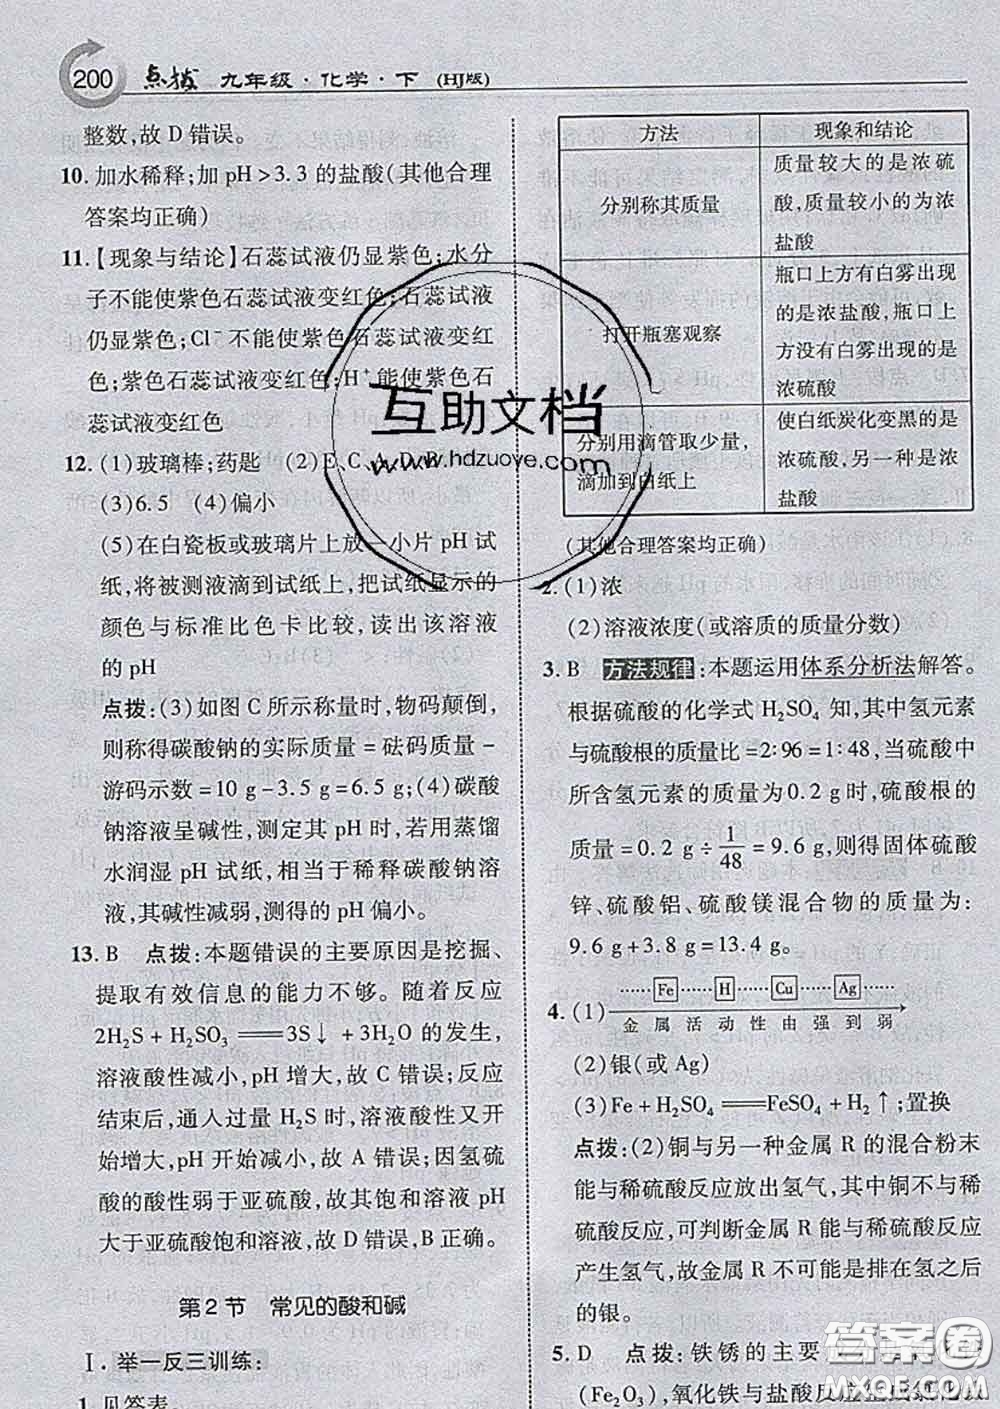 200 点拨 九年级·化学·下 (HJ版)
整数,故 D 错误。
10. 加水稀释;加 pH>3.3 的盐酸(其他合理
答案均正确)
11.【现象与结论】石蕊试液仍显紫色;水分
子不能使紫色石蕊试液变红色;石蕊试液
仍显紫色;Cl⁻不能使紫色石蕊试液变红
色;紫色石蕊试液变红色;H⁺能使紫色石
蕊试液变红色
12. (1)玻璃棒;药匙 (2)E、C、A、D、B
(3)6.5 (4)偏小
(5)在白瓷板或玻璃片上放一小片 pH 试
纸,将被测液滴到试纸上,把试纸显示的
颜色与标准比色卡比较,读出该溶液
的 pH
点拨:(3)如图 C 所示称量时,物码颠倒,
则称得碳酸钠的实际质量=砝码质量-
游码示数=10 g-3.5 g=6.5 g;(4)碳酸
钠溶液呈碱性,测定其 pH 时,若用蒸馏
水润湿 pH 试纸,相当于稀释碳酸钠溶
液,其碱性减弱,测得的 pH 偏小。
13. B 点拨:本题错误的主要原因是挖掘、
提取有效信息的能力不够。随着反应
2H₂S+H₂SO₃═══3S↓+3H₂O 的发生,
溶液酸性减小,pH 增大,故 C 错误;反应
结束后,通入过量 H₂S 时,溶液酸性又开
始增大,pH 开始减小,故 A 错误;因氢硫
酸的酸性弱于亚硫酸,故其饱和溶液 pH
大于亚硫酸饱和溶液,故 D 错误,B 正确。
第 2 节 常见的酸和碱
Ⅰ.举一反三训练:
1. 见答表。
方法 现象和结论
分别称其质量
质量较大的是浓硫
酸,质量较小的为浓
盐酸
打开瓶塞观察
瓶口上方有白雾出现
的是浓盐酸,瓶口上
方没有白雾出现的是
浓硫酸
分别用滴管取少量,
滴加到白纸上
使白纸炭化变黑的是
浓硫酸,另一种是浓
盐酸
(其他合理答案均正确)
2. (1)浓
(2)溶液浓度(或溶质的质量分数)
3. B 方法规律:本题运用体系分析法解答。
根据硫酸的化学式 H₂SO₄ 知,其中氢元素
与硫酸根的质量比=2:96=1:48,当硫酸中
所含氢元素的质量为 0.2 g 时,硫酸根的
质量=0.2 g÷1/48=9.6 g,则得固体硫酸
锌、硫酸铝、硫酸镁混合物的质量为:
9.6 g+3.8 g=13.4 g。
4. (1) ……Fe……H……Cu……Ag……
金属活动性由强到弱
(2)银(或 Ag)
(3)Fe+H₂SO₄═══FeSO₄+H₂↑;置换
点拨:(2)铜与另一种金属 R 的混合粉末
能与稀硫酸反应放出氢气,其中铜不与稀
硫酸反应,可判断金属 R 能与稀硫酸反应
产生氢气,故金属 R 不可能是排在氢之后
的银。
5. D 点拨:铁锈的主要
(Fe₂O₃),氧化铁与盐酸反应
互助文档
www.hdzuoye.com
答案圈
MXQE.COM